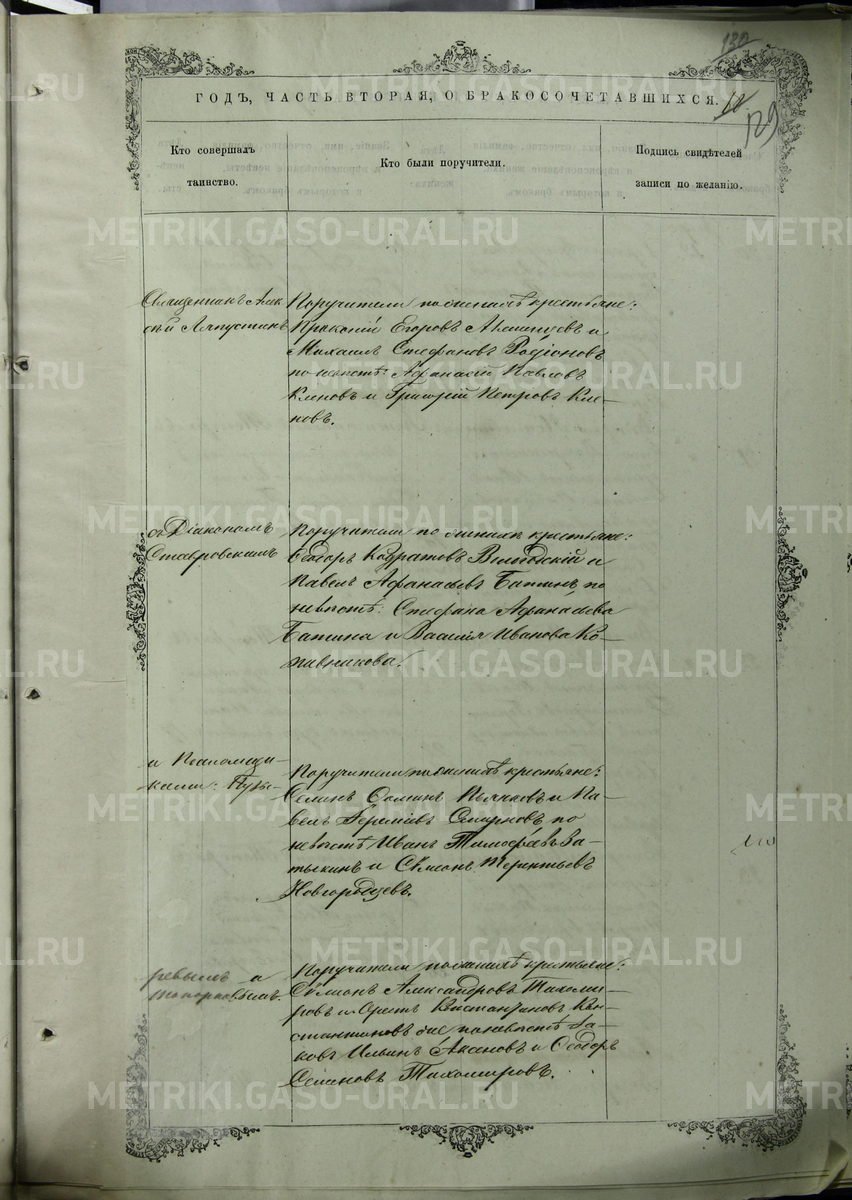 130
ГОДЪ, ЧАСТЬ ВТОРАЯ, О БРАКОСОЧЕТАВШИХСЯ.
129
Кто совершалъ
таинство.
Кто были поручители.
Подпись свидѣтелей
записи по желанію.
METRIKI.GASO-URAL.RU
Священникъ Алек
сѣй Ляпустинъ
Поручители по женихѣ крестьяне:
Егоровъ и
Михаилъ Стефановъ Родіоновъ
по невѣстѣ: Афанасій Павловъ
Кленовъ и Григорій Петровъ Кле-
новъ.
съ Діакономъ
Ставровскимъ
Поручители по женихѣ крестьяне:
Ѳеодоръ и
Павелъ Афанасьевъ Батинъ, по
невѣстѣ: Стефана Афанасьева
Батина и Василія Иванова Ко-
павнакова.
и Псаломщи-
ками: Пузы-
Поручители по женихѣ крестьяне:
и Па-
велъ Смирновъ по
невѣстѣ Иванъ Тимофѣевъ За-
тыкинъ и Сѵмеонъ Терентьевъ
Новгородцевъ.
ревымъ и
Топорковымъ.
Поручители по женихѣ крестьяне:
Сѵмеонъ Александровъ Тихоми-
ровъ и Константиновъ Кон-
стантиновъ по невѣстѣ Іа-
ковъ Ильинъ Аксеновъ и Ѳеодоръ
Семеновъ Тихомировъ.